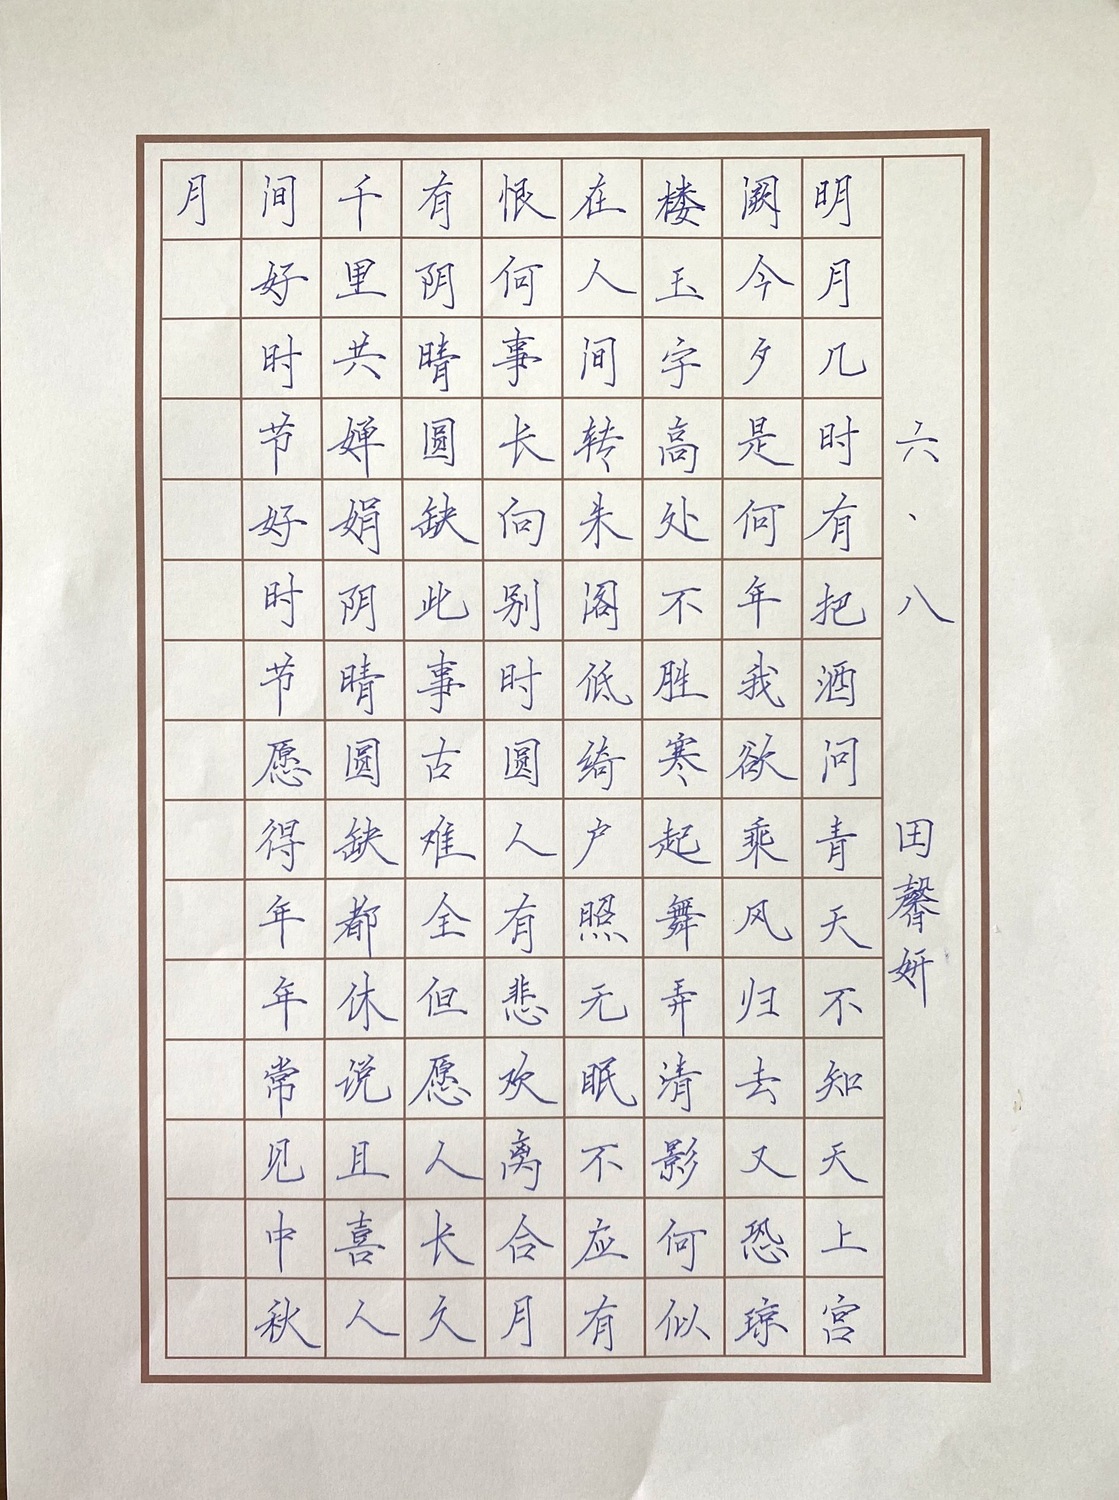 六、八 田馨妍
明月几时有把酒问青天不知天上宫
阙今夕是何年我欲乘风归去又恐琼
楼玉宇高处不胜寒起舞弄清影何似
在人间转朱阁低绮户照无眠不应有
恨何事长向别时圆人有悲欢离合月
有阴晴圆缺此事古难全但愿人长久
千里共婵娟阴晴圆缺都休说且喜人
间好时节好时节愿得年年常见中秋
月